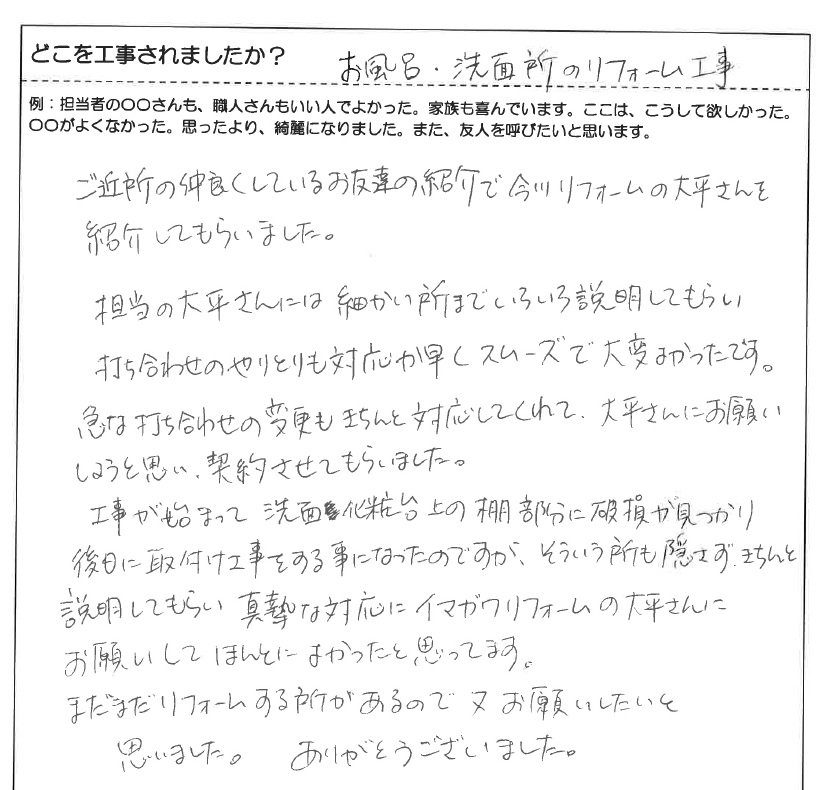 どこを工事されましたか？ お風呂・洗面所のリフォーム工事
例：担当者の〇〇さんも、職人さんもいい人でよかった。家族も喜んでいます。ここは、こうして欲しかった。
〇〇がよくなかった。思ったより、綺麗になりました。また、友人を呼びたいと思います。
ご近所の仲良くしているお友達の紹介で今川リフォームの大平さんを
紹介してもらいました。
担当の大平さんには細かい所までいろいろ説明してもらい
打ち合わせのやりとりも対応が早くスムーズで大変よかったです。
急な打ち合わせの変更もきちんと対応してくれて、大平さんにお願い
しようと思い、契約させてもらいました。
工事が始まって洗面化粧台上の棚部分に破損が見つかり
後日に取付け工事をする事になったのですが、そういう所も隠さず、きちんと
説明してもらい真摯な対応にイマガワリフォームの大平さんに
お願いしてほんとによかったと思ってます。
まだまだリフォームする所があるので又お願いしたいと
思いました。 ありがとうございました。